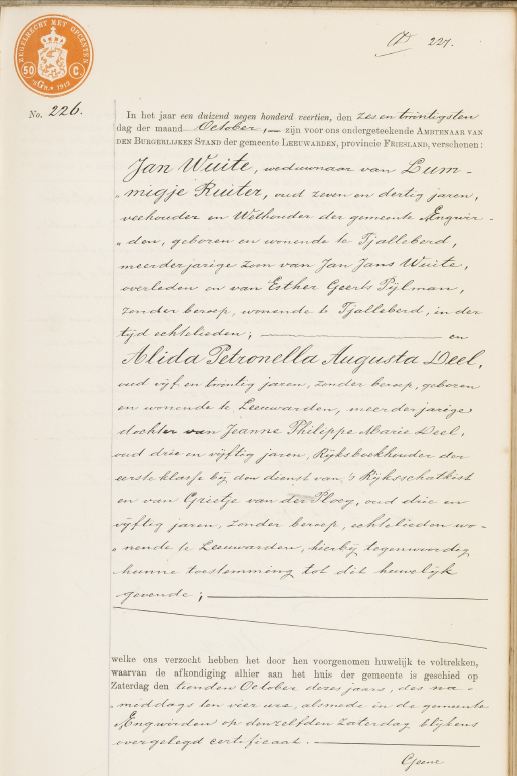 227.
ZEGELRECHT MET OPCENTEN
50 C.
No. 226.
In het jaar een duizend negen honderd veertien, den zes en twintigsten
dag der maand October, — zijn voor ons ondergeteekende AMBTENAAR VAN
DEN BURGERLIJKEN STAND der gemeente LEEUWARDEN, provincie FRIESLAND, verschenen:
Jan Wuite, weduwnaar van Lum-
"migje Ruiter, oud zeven en dertig jaren,
veehouder en Wethouder der gemeente Ængwir-
"den, geboren en wonende te Tjalleberd,
meerderjarige zoon van Jan Jans Wuite,
overleden en van Esther Geerts Pijlman,
zonder beroep, wonende te Tjalleberd, in der
tijd echtelieden; — en
Alida Petronella Augusta Deel,
oud vijf en twintig jaren, zonder beroep, geboren
en wonende te Leeuwarden, meerderjarige
dochter van Jeanne Philippe Marie Deel,
oud drie en vijftig jaren, Rijksboekhouder der
eerste klasse bij den dienst van 's Rijksschatkist
en van Grietje van der Ploeg, oud drie en
vijftig jaren, zonder beroep, echtelieden wo-
"nende te Leeuwarden, hierbij tegenwoordig
hunne toestemming tot dit huwelijk
gevende; —
welke ons verzocht hebben het door hen voorgenomen huwelijk te voltrekken,
waarvan de afkondiging alhier aan het huis der gemeente is geschied op
Zaterdag den tienden October dezes jaars, des na-
"middags ten vier ure, alsmede in de gemeente
Ængwirden op denzelfden Zaterdag blijkens
overgelegd certificaat. —
Geene